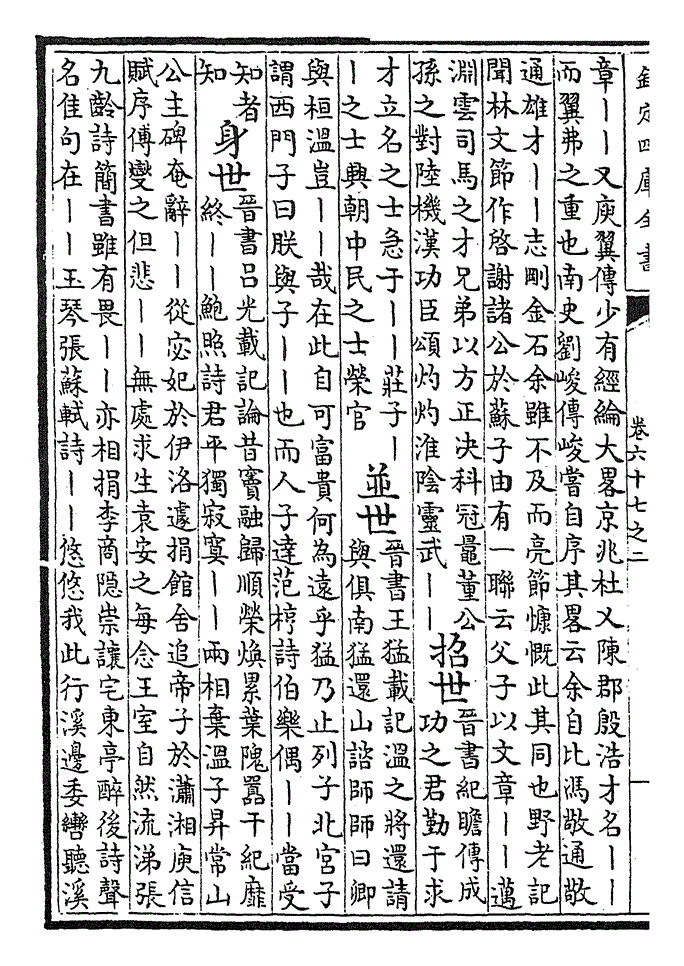 欽定四庫全書
卷六十七之二
一
章丨丨又庾翼傳少有經綸大畧京兆杜乂陳郡殷浩才名丨丨
而翼弗之重也南史劉峻傳峻嘗自序其畧云余自比馮敬通敬
通雄才丨丨志剛金石余雖不及而亮節慷慨此其同也野老記
聞林文節作啓謝諸公於蘇子由有一聯云父子以文章丨丨邁
淵雲司馬之才兄弟以方正決科冠鼂董公
孫之對陸機漢功臣頌灼灼淮陰靈武丨丨
招世
晉書紀瞻傳成
功之君勤于求
才立名之士急于丨丨莊子丨
丨之士興朝中民之士榮官
並世
晉書王猛載記溫之將還請
與俱南猛還山諮師師曰卿
與桓溫豈丨丨哉在此自可富貴何為遠乎猛乃止列子北宮子
謂西門子曰朕與子丨丨也而人子達范梈詩伯樂偶丨丨當受
知者
知
身世
晉書呂光載記論昔竇融歸順榮煥累葉隗囂干紀靡
終丨丨鮑照詩君平獨寂寞丨丨兩相棄溫子昇常山
公主碑奄辭丨丨從宓妃於伊洛遽捐館舍追帝子於瀟湘庾信
賦序傅燮之但悲丨丨無處求生袁安之每念王室自然流涕張
九齡詩簡書雖有畏丨丨亦相捐李商隱崇讓宅東亭醉後詩聲
名佳句在丨丨玉琴張蘇軾詩丨丨悠悠我此行溪邊委轡聽溪